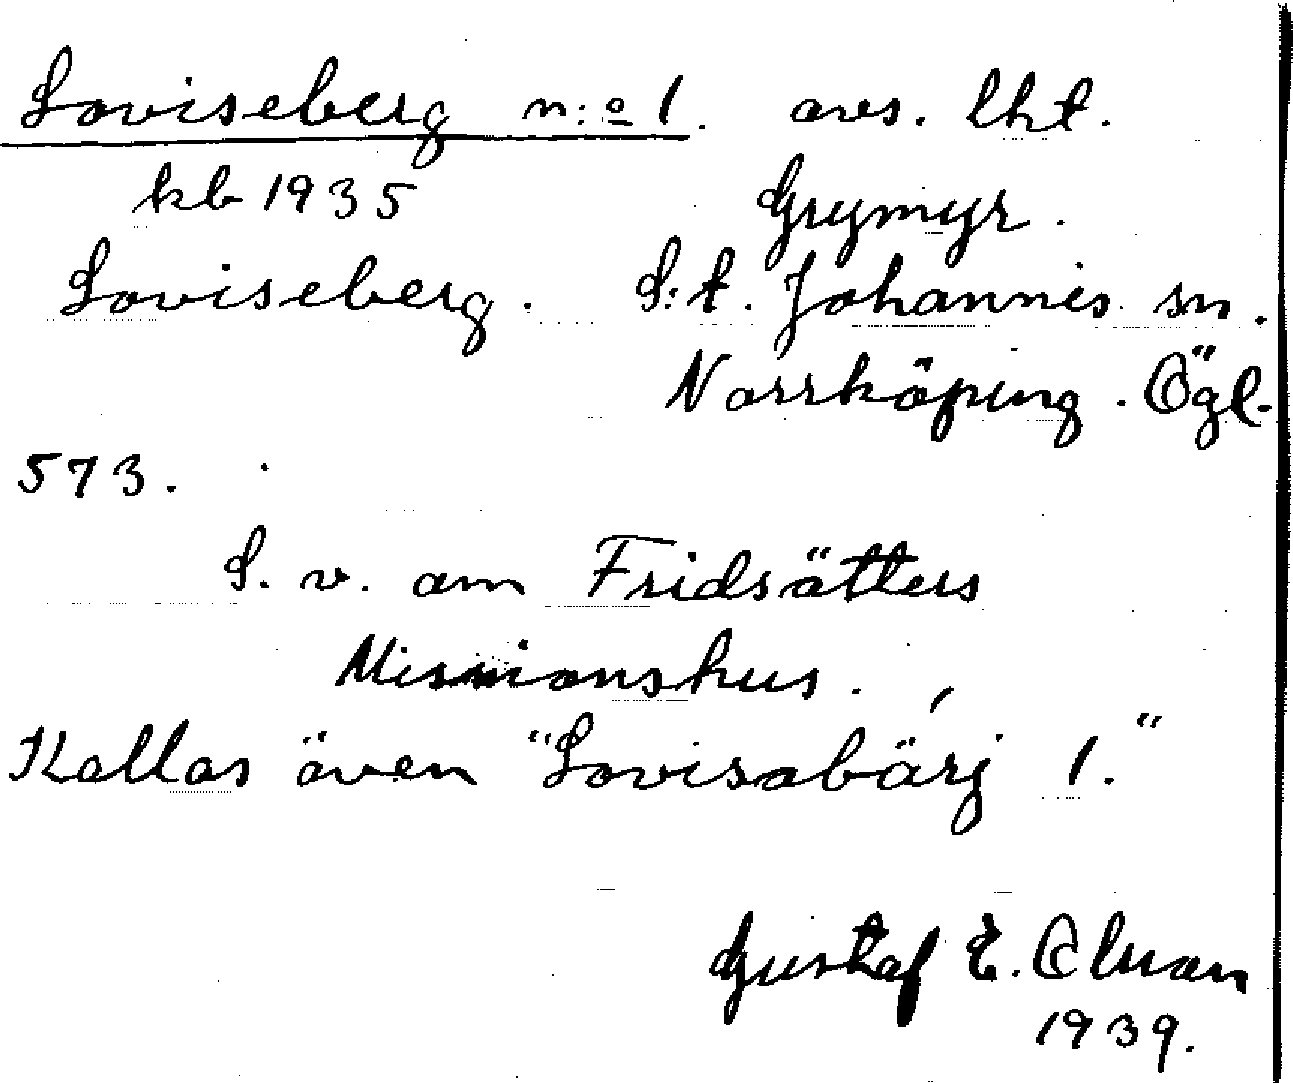 Loviseberg n:o 1. avs. lht.
kb 1935 Grymyr.
Loviseberg. S:t. Johannes sn.
Norrköping. Ögl.
573.
S. v. om Fridsätters
Missionshus.
Kallas även "Lovisabärj 1."
Gustaf E. Olman
1939.